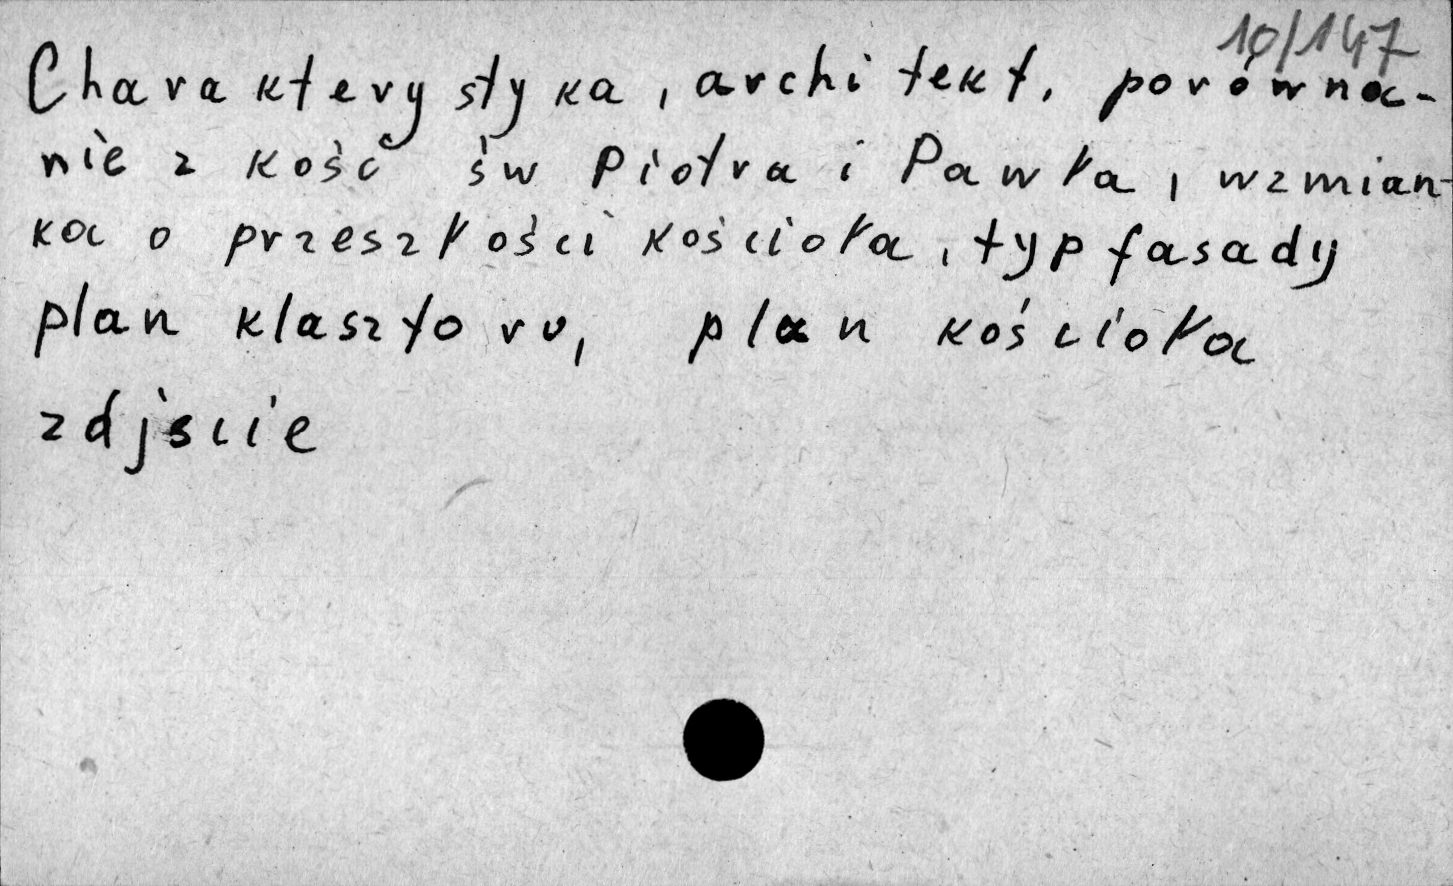 10/147
Charakterystyka, architekt, porówna-
nie z kość św Piotra i Pawła, wzmian-
ka o przeszłości kościoła, typ fasady
plan klasztoru, plan kościoła
zdjście